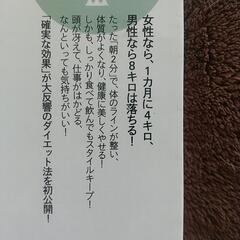 女性なら、1カ月に4キロ、
男性なら8キロは落ちる!
たった「朝2分」で、体のラインが整い、
体質がよくなり、健康に美しくやせる!
しかも、しっかり食べて飲んでもスタイルキープ!
頭が冴えて、仕事がはかどる、
なんといっても気持ちがいい!
「確実な効果」が大反響のダイエット法を初公開!